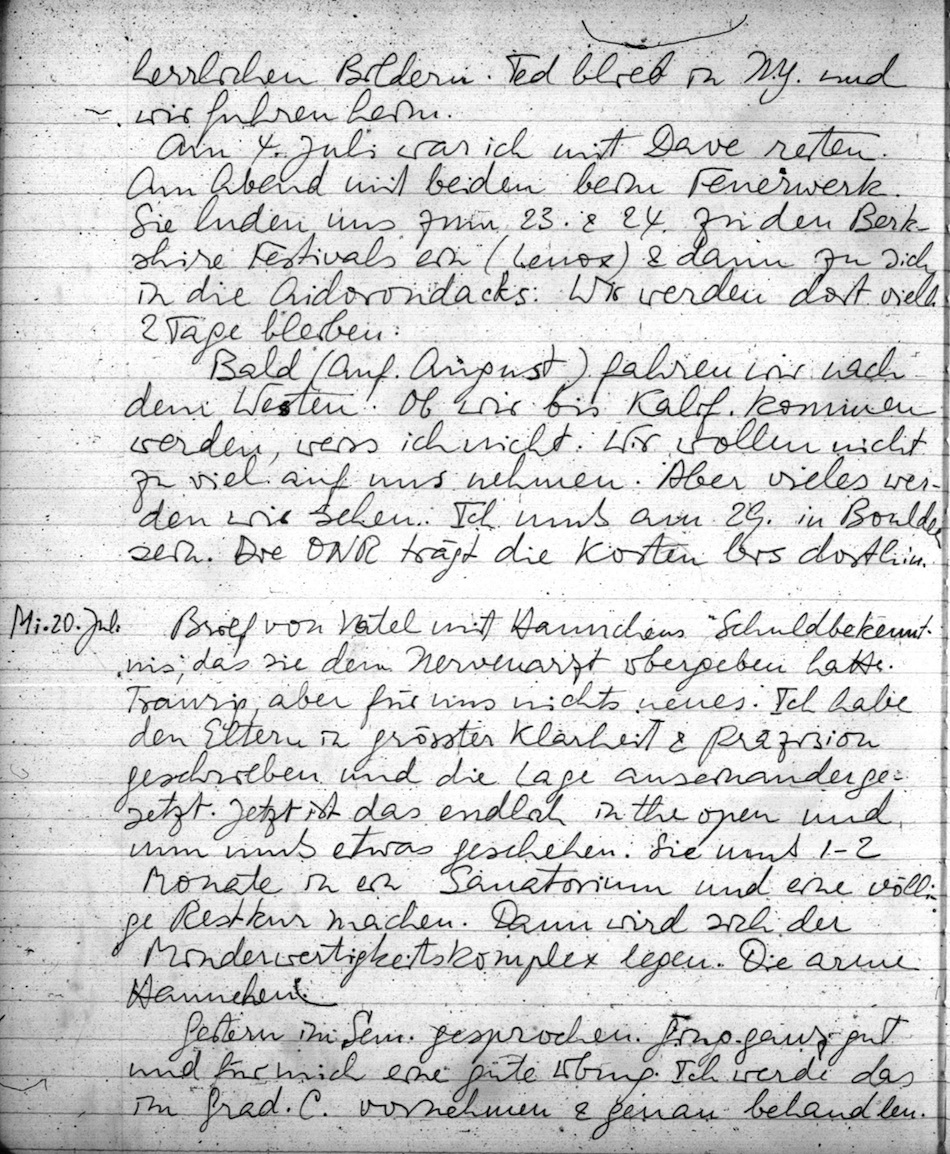 herrlichen Bildern. Ted blieb in N.Y. und
wir fuhren heim.
Am 4. Juli war ich mit Dave reiten.
Am Abend mit beiden beim Feuerwerk.
Sie luden uns zum 23. & 24. zu den Berk-
shire Festivals ein (Lenox) & dann zu sich
in die Aidorondacks. Wir werden dort viell.
2 Tage bleiben.
Bald (Anf. August) fahren wir nach
dem Westen. Ob wir bis Kalif. kommen
werden, weiss ich nicht. Wir wollen nicht
zu viel auf uns nehmen. Aber vieles wer-
den wir sehen. Ich muß am 29. in Boulder
sein. Die ONR trägt die Kosten bis dorthin.
Mi. 20. Jul. Brief von Vatel mit Hannchens "Schuldbekennt-
nis", das sie dem Nervenarzt übergeben hatte.
Traurig, aber für uns nichts neues. Ich habe
den Eltern in grösster Klarheit & Präzision
geschrieben und die Lage auseinanderge-
setzt. Jetzt ist das endlich in the open und
nun muß etwas geschehen. Sie muß 1-2
Monate in ein Sanatorium und eine völli-
ge Restkur machen. Dann wird sich der
Minderwertigkeitskomplex legen. Die arme
Hannchen.
Gestern im Sem. gesprochen. Ging ganz gut
und für mich eine gute Übung. Ich werde das
im Grad. C. vornehmen & genau behandlen.